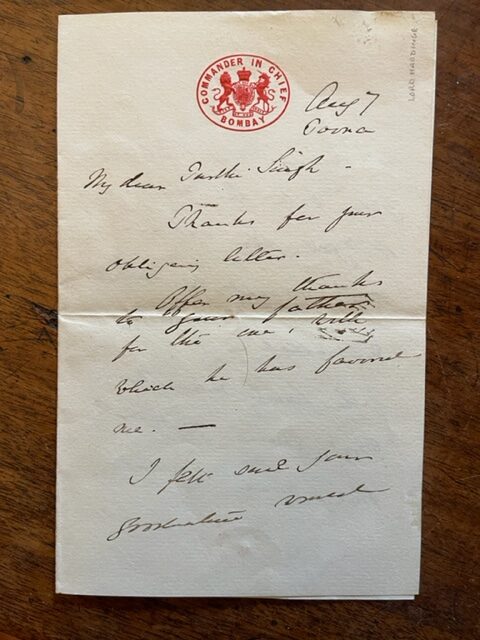 LORD HARDINGE
COMMANDER IN CHIEF
BOMBAY
Aug 7
Poona
My dear Singh -
Thanks for your
obliging letter.
Offer my thanks
to your father
for the one, with
which he has favored
me. —
I felt sure your
would